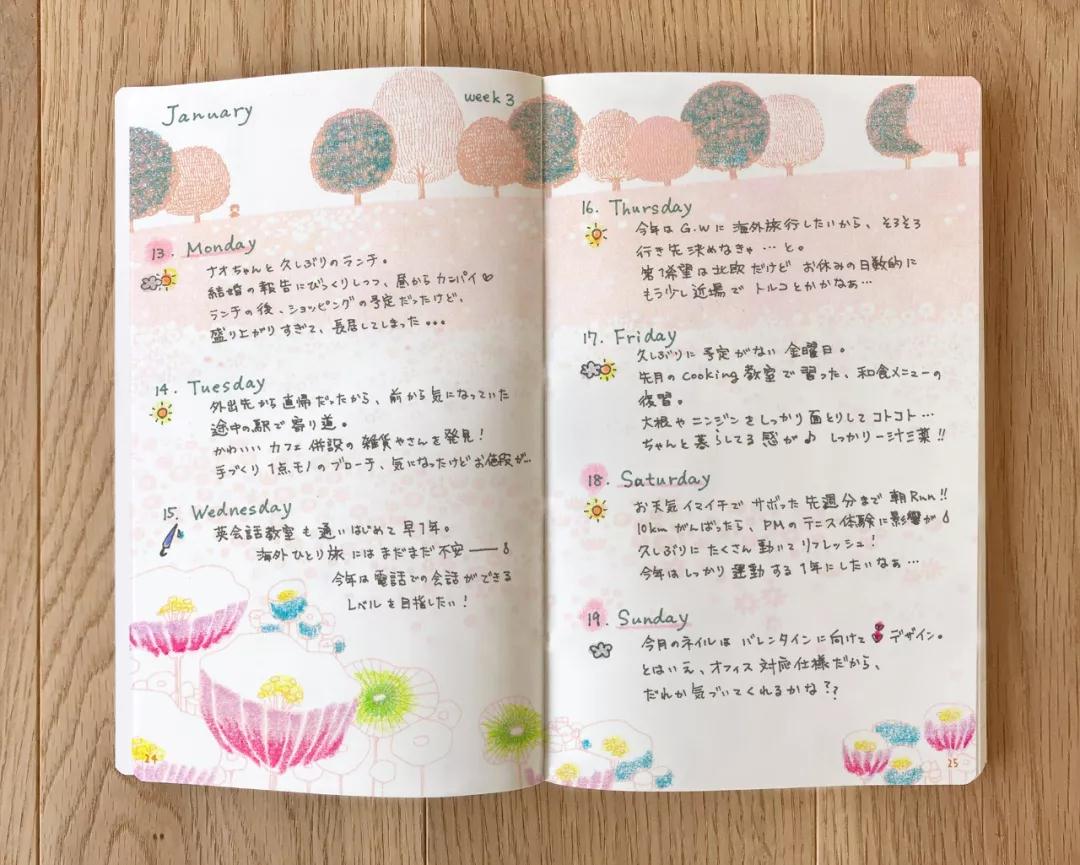 January
week 3
13. Monday
ナオちゃんと久しぶりのランチ。
結婚の報告にびっくりしつつ、昼からカンパイ♡
ランチの後、ショッピングの予定だったけど、
盛り上がりすぎて、長居してしまった・・・
14. Tuesday
外出先から直帰だったから、前から気になっていた
途中の駅で寄り道。
かわいい カフェ併設の雑貨やさんを発見！
手づくり1点モノのブローチ、気になったけどお値段が…
15. Wednesday
英会話教室も通いはじめて早1年。
海外ひとり旅にはまだまだ不安——
今年は電話での会話ができる
レベルを目指したい！
24
16. Thursday
今年はG.Wに海外旅行したいから、そろそろ
行き先決めなきゃ…と。
第1希望は北欧だけど お休みの日数的に
もう少し近場で トルコとかかなぁ…
17. Friday
久しぶりに予定がない金曜日。
先月のcooking教室で習った、和食メニューの
復習。
大根やニンジンをしっかり面とりしてコトコト…
ちゃんと暮らしてる感が♪ しっかり一汁三菜!!
18. Saturday
お天気イマイチでサボった先週分まで朝Run!!
10kmがんばったら、PMのテニス体験に影響が
久しぶりにたくさん動いてリフレッシュ！
今年はしっかり運動する1年にしたいなぁ…
19. Sunday
今月のネイルは バレンタインに向けて デザイン。
とはいえ、オフィス対応仕様だから、
だれか気づいてくれるかな??
25